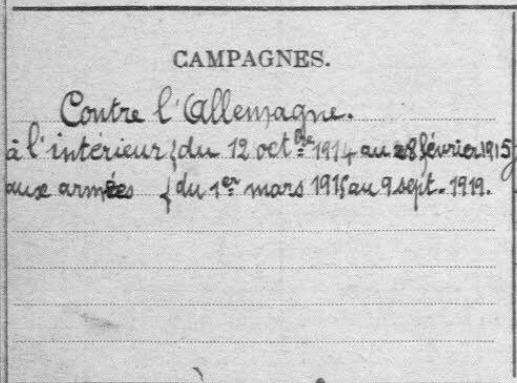 CAMPAGNES.
Contre l'Allemagne.
à l'intérieur { du 12 oct.bre 1914 au 28 février 1915
aux armées { du 1er mars 1915 au 9 sept. 1919.